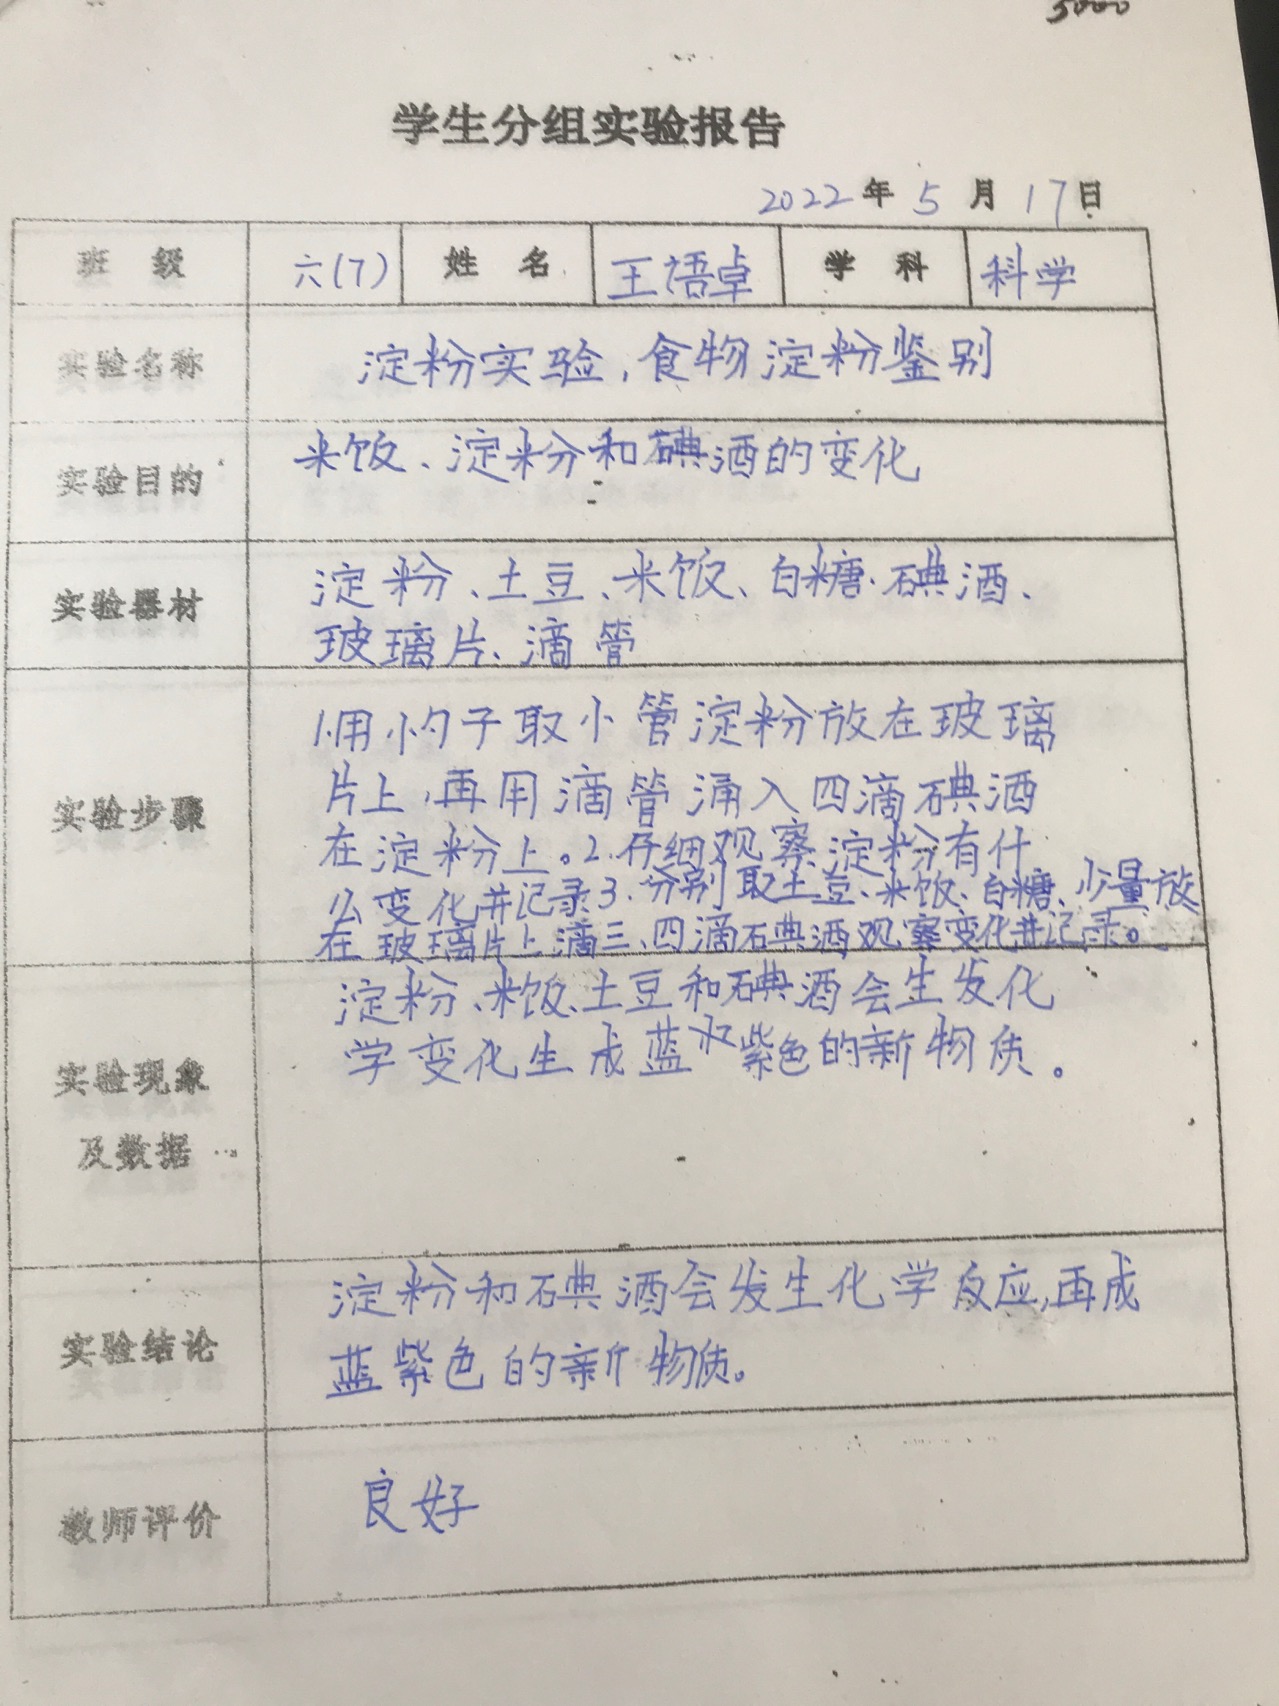 5000
学生分组实验报告
2022年5月17日
班 级 六(7) 姓 名 王语卓 学 科 科学
实验名称 淀粉实验,食物淀粉鉴别
实验目的 米饭、淀粉和碘酒的变化
实验器材 淀粉、土豆、米饭、白糖.碘酒、
玻璃片、滴管
实验步骤 1.用小勺子取小管淀粉放在玻璃
片上,再用滴管涌入四滴碘酒
在淀粉上。2.仔细观察淀粉有什
么变化并记录3.分别取土豆、米饭、白糖、少量放
在玻璃片上滴三、四滴碘酒观察变化并记录。
实验现象
及数据
淀粉、米饭、土豆和碘酒会生发化
学变化生成蓝紫色的新物质。
实验结论 淀粉和碘酒会发生化学反应,再成
蓝紫色的新物质。
教师评价 良好